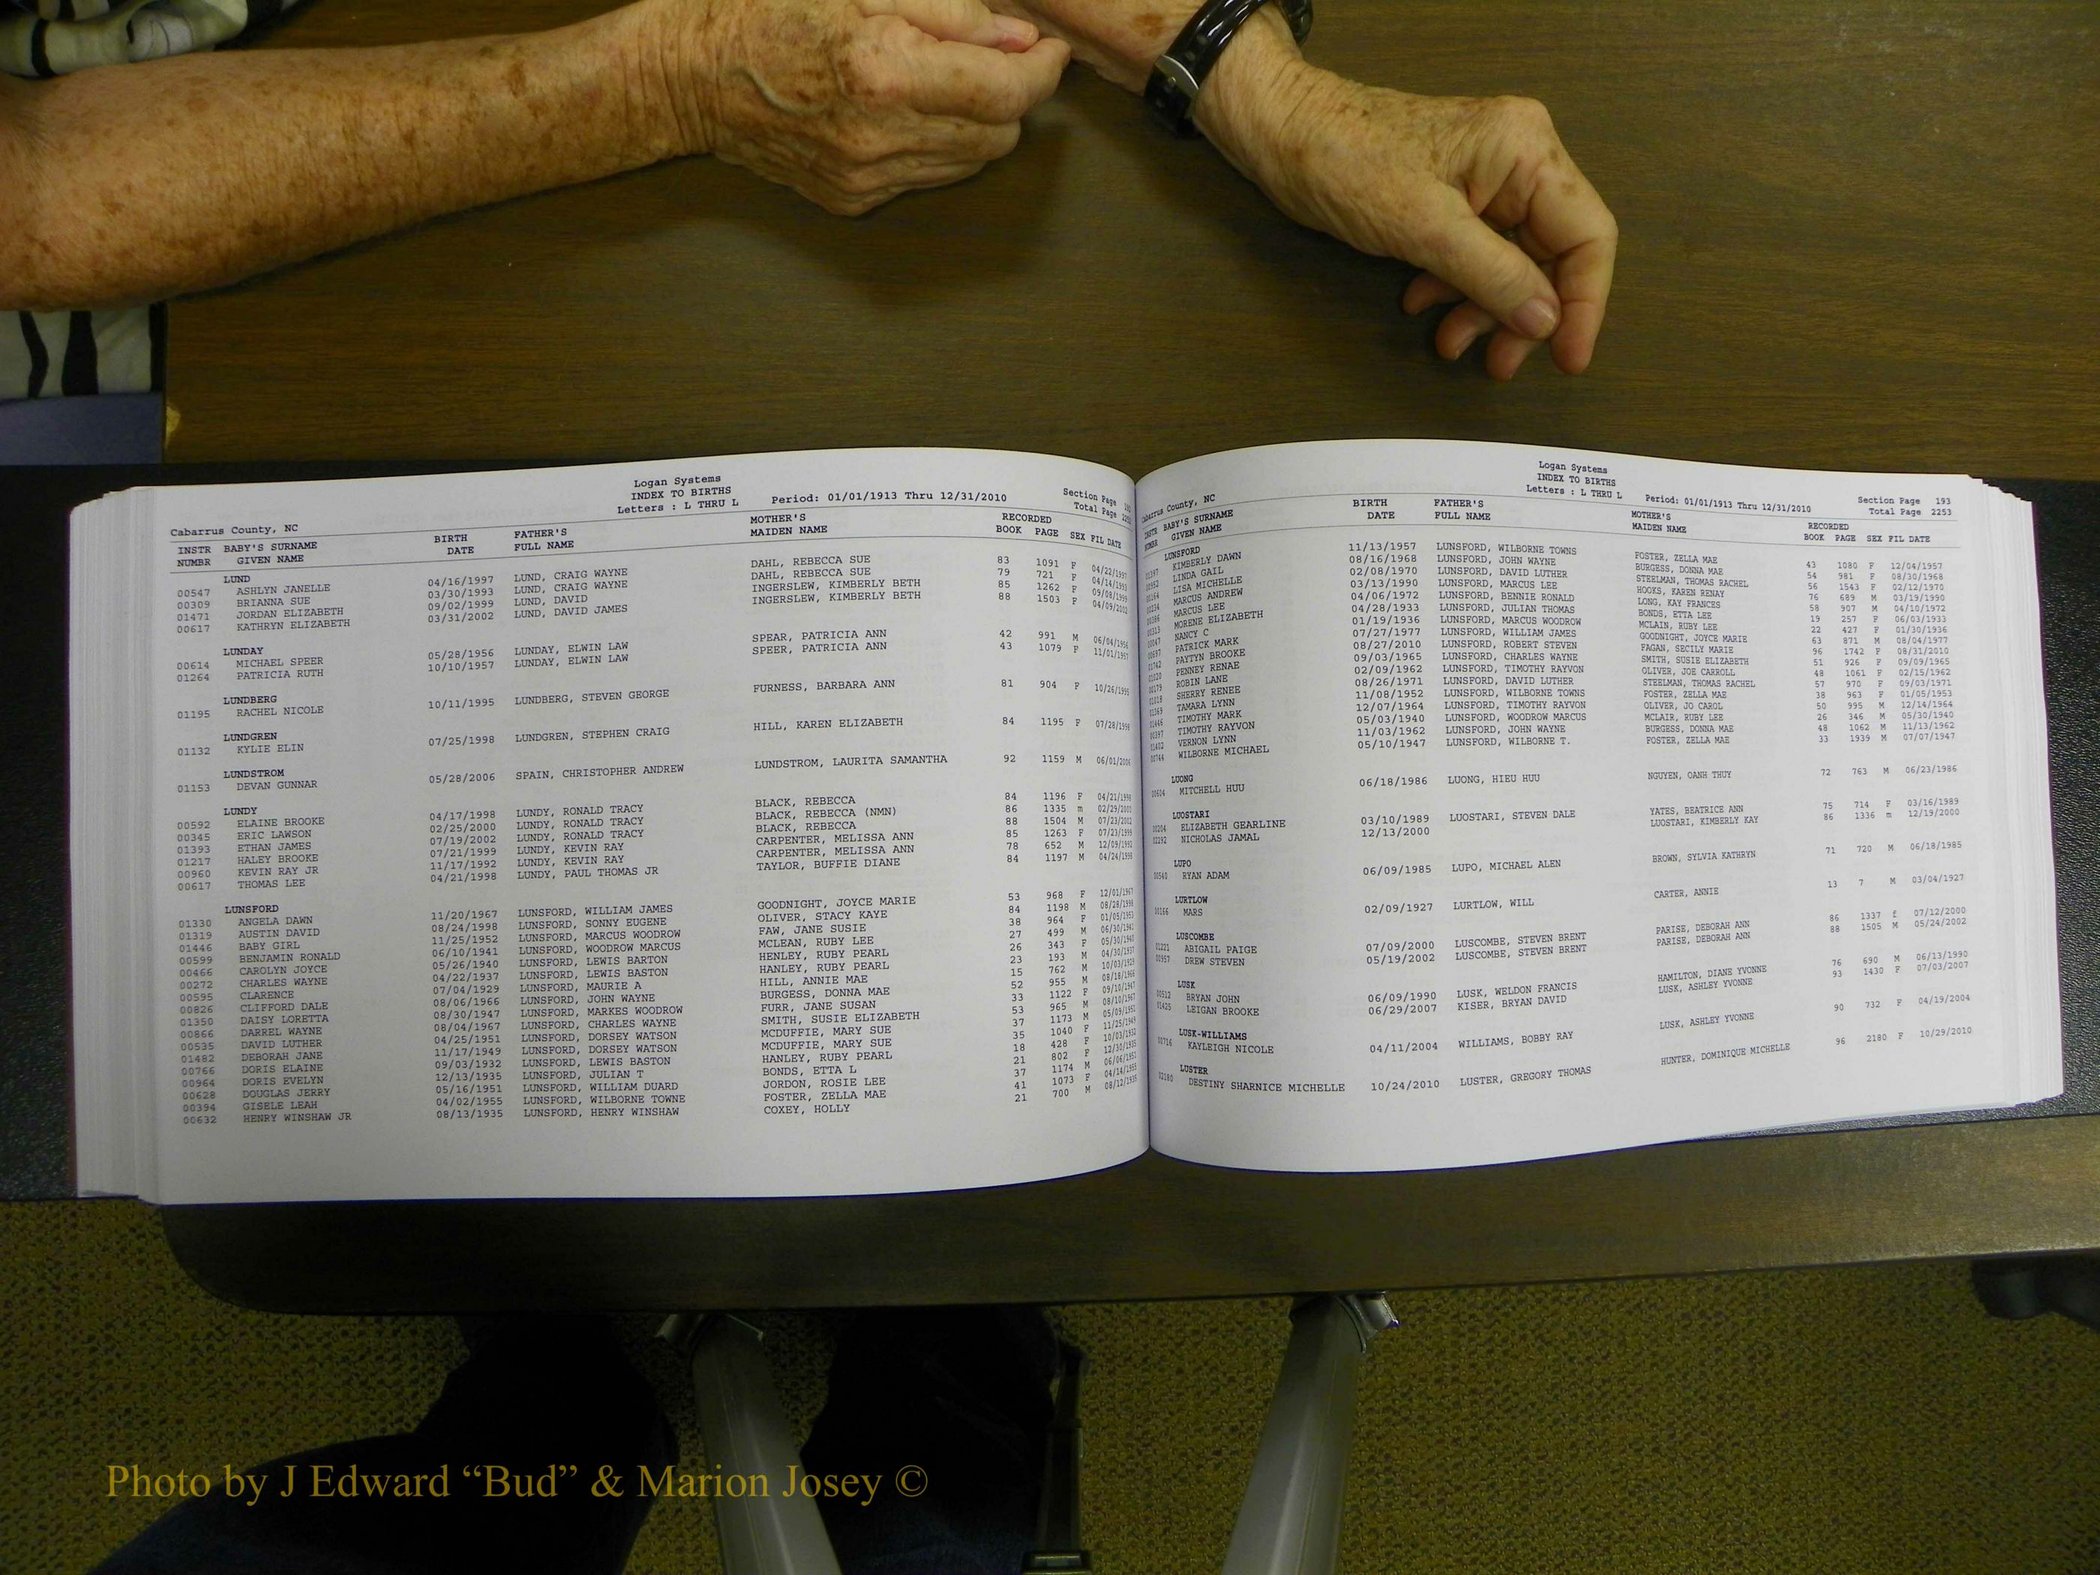 Logan Systems
INDEX TO BIRTHS
Letters : L THRU L
Period: 01/01/1913 Thru 12/31/2010
Section Page
Total Page
Cabarrus County, NC
INSTR BABY'S SURNAME BIRTH FATHER'S MOTHER'S RECORDED
NUMBR GIVEN NAME DATE FULL NAME MAIDEN NAME BOOK PAGE SEX FIL DATE
LUND
00547 ASHLYN JANELLE 04/16/1997 LUND, CRAIG WAYNE DAHL, REBECCA SUE 83 1091 F 04/22/1997
00309 BRIANNA SUE 03/30/1993 LUND, CRAIG WAYNE DAHL, REBECCA SUE 79 721 F 04/14/1993
01471 JORDAN ELIZABETH 09/02/1999 LUND, DAVID INGERSLEW, KIMBERLY BETH 85 1262 F 09/08/1999
00617 KATHRYN ELIZABETH 03/31/2002 LUND, DAVID JAMES INGERSLEW, KIMBERLY BETH 88 1503 F 04/09/2002
LUNDAY
00614 MICHAEL SPEER 05/28/1956 LUNDAY, ELWIN LAW SPEAR, PATRICIA ANN 42 991 M 06/04/1956
01264 PATRICIA RUTH 10/10/1957 LUNDAY, ELWIN LAW SPEER, PATRICIA ANN 43 1079 F 11/01/1957
LUNDBERG
01195 RACHEL NICOLE 10/11/1995 LUNDBERG, STEVEN GEORGE FURNESS, BARBARA ANN 81 904 F 10/26/1995
LUNDGREN
01132 KYLIE ELIN 07/25/1998 LUNDGREN, STEPHEN CRAIG HILL, KAREN ELIZABETH 84 1195 F 07/28/1998
LUNDSTROM
01153 DEVAN GUNNAR 05/28/2006 SPAIN, CHRISTOPHER ANDREW LUNDSTROM, LAURITA SAMANTHA 92 1159 M 06/01/2006
LUNDY
00592 ELAINE BROOKE 04/17/1998 LUNDY, RONALD TRACY BLACK, REBECCA 84 1196 F 04/21/1998
00345 ERIC LAWSON 02/25/2000 LUNDY, RONALD TRACY BLACK, REBECCA (NMN) 86 1335 m 02/29/2000
01393 ETHAN JAMES 07/19/2002 LUNDY, RONALD TRACY BLACK, REBECCA 88 1504 M 07/23/2002
01217 HALEY BROOKE 07/21/1999 LUNDY, KEVIN RAY CARPENTER, MELISSA ANN 85 1263 F 07/23/1999
00960 KEVIN RAY JR 11/17/1992 LUNDY, KEVIN RAY CARPENTER, MELISSA ANN 78 652 M 12/09/1992
00617 THOMAS LEE 04/21/1998 LUNDY, PAUL THOMAS JR TAYLOR, BUFFIE DIANE 84 1197 M 04/24/1998
LUNSFORD
01330 ANGELA DAWN 11/20/1967 LUNSFORD, WILLIAM JAMES GOODNIGHT, JOYCE MARIE 53 968 F 12/01/1967
01319 AUSTIN DAVID 08/24/1998 LUNSFORD, SONNY EUGENE OLIVER, STACY KAYE 84 1198 M 08/28/1998
01446 BABY GIRL 11/25/1952 LUNSFORD, MARCUS WOODROW FAW, JANE SUSIE 38 964 F 01/05/1953
00599 BENJAMIN RONALD 06/10/1941 LUNSFORD, WOODROW MARCUS MCLEAN, RUBY LEE 27 499 M 06/30/1941
00466 CAROLYN JOYCE 05/26/1940 LUNSFORD, LEWIS BARTON HENLEY, RUBY PEARL 26 343 F 05/30/1940
00272 CHARLES WAYNE 04/22/1937 LUNSFORD, LEWIS BASTON HANLEY, RUBY PEARL 23 193 M 04/30/1937
00595 CLARENCE 07/04/1929 LUNSFORD, MAURIE A HILL, ANNIE MAE 15 762 M 10/03/1929
00826 CLIFFORD DALE 08/06/1966 LUNSFORD, JOHN WAYNE BURGESS, DONNA MAE 52 955 M 08/18/1966
01350 DAISY LORETTA 08/30/1947 LUNSFORD, MARKES WOODROW FURR, JANE SUSAN 33 1122 F 09/10/1947
00866 DARREL WAYNE 08/04/1967 LUNSFORD, CHARLES WAYNE SMITH, SUSIE ELIZABETH 53 965 M 08/10/1967
00535 DAVID LUTHER 04/25/1951 LUNSFORD, DORSEY WATSON MCDUFFIE, MARY SUE 37 1173 M 05/09/1951
01482 DEBORAH JANE 11/17/1949 LUNSFORD, DORSEY WATSON MCDUFFIE, MARY SUE 35 1040 F 11/25/1949
00766 DORIS ELAINE 09/03/1932 LUNSFORD, LEWIS BASTON HANLEY, RUBY PEARL 18 428 F 10/03/1932
00964 DORIS EVELYN 12/13/1935 LUNSFORD, JULIAN T BONDS, ETTA L 21 802 F 12/30/1935
00628 DOUGLAS JERRY 05/16/1951 LUNSFORD, WILLIAM DUARD JORDON, ROSIE LEE 37 1174 M 06/06/1951
00394 GISELE LEAH 04/02/1955 LUNSFORD, WILBORNE TOWNE FOSTER, ZELLA MAE 41 1073 F 04/14/1955
00632 HENRY WINSHAW JR 08/13/1935 LUNSFORD, HENRY WINSHAW COXEY, HOLLY 21 700 M 08/12/1935
Logan Systems
INDEX TO BIRTHS
Letters : L THRU L
Period: 01/01/1913 Thru 12/31/2010
Section Page 193
Total Page 2253
Cabarrus County, NC
INSTR BABY'S SURNAME BIRTH FATHER'S MOTHER'S RECORDED
NUMBR GIVEN NAME DATE FULL NAME MAIDEN NAME BOOK PAGE SEX FIL DATE
LUNSFORD
KIMBERLY DAWN 11/13/1957 LUNSFORD, WILBORNE TOWNS FOSTER, ZELLA MAE 43 1080 F 12/04/1957
LINDA GAIL 08/16/1968 LUNSFORD, JOHN WAYNE BURGESS, DONNA MAE 54 981 F 08/30/1968
LISA MICHELLE 02/08/1970 LUNSFORD, DAVID LUTHER STEELMAN, THOMAS RACHEL 56 1543 F 02/12/1970
MARCUS ANDREW 03/13/1990 LUNSFORD, MARCUS LEE HOOKS, KAREN RENAY 76 689 M 03/19/1990
MARCUS LEE 04/06/1972 LUNSFORD, BENNIE RONALD LONG, KAY FRANCES 58 907 M 04/10/1972
MORENE ELIZABETH 04/28/1933 LUNSFORD, JULIAN THOMAS BONDS, ETTA LEE 19 257 F 06/03/1933
NANCY C 01/19/1936 LUNSFORD, MARCUS WOODROW MCLAIN, RUBY LEE 22 427 F 01/30/1936
PATRICK MARK 07/27/1977 LUNSFORD, WILLIAM JAMES GOODNIGHT, JOYCE MARIE 63 871 M 08/04/1977
PAYTYN BROOKE 08/27/2010 LUNSFORD, ROBERT STEVEN FAGAN, SECILY MARIE 96 1742 F 08/31/2010
PENNEY RENAE 09/03/1965 LUNSFORD, CHARLES WAYNE SMITH, SUSIE ELIZABETH 51 926 F 09/09/1965
ROBIN LANE 02/09/1962 LUNSFORD, TIMOTHY RAYVON OLIVER, JOE CARROLL 48 1061 F 02/15/1962
SHERRY RENEE 08/26/1971 LUNSFORD, DAVID LUTHER STEELMAN, THOMAS RACHEL 57 970 F 09/03/1971
TAMARA LYNN 11/08/1952 LUNSFORD, WILBORNE TOWNS FOSTER, ZELLA MAE 38 963 F 01/05/1953
TIMOTHY MARK 12/07/1964 LUNSFORD, TIMOTHY RAYVON OLIVER, JO CAROL 50 995 M 12/14/1964
TIMOTHY RAYVON 05/03/1940 LUNSFORD, WOODROW MARCUS MCLAIR, RUBY LEE 26 346 M 05/30/1940
VERNON LYNN 11/03/1962 LUNSFORD, JOHN WAYNE BURGESS, DONNA MAE 48 1062 M 11/13/1962
00744 WILBORNE MICHAEL 05/10/1947 LUNSFORD, WILBORNE T. FOSTER, ZELLA MAE 33 1939 M 07/07/1947
LUONG
00604 MITCHELL HUU 06/18/1986 LUONG, HIEU HUU NGUYEN, OANH THUY 72 763 M 06/23/1986
LUOSTARI
00204 ELIZABETH GEARLINE 03/10/1989 LUOSTARI, STEVEN DALE YATES, BEATRICE ANN 75 714 F 03/16/1989
02292 NICHOLAS JAMAL 12/13/2000 LUOSTARI, KIMBERLY KAY 86 1336 m 12/19/2000
LUPO
00540 RYAN ADAM 06/09/1985 LUPO, MICHAEL ALEN BROWN, SYLVIA KATHRYN 71 720 M 06/18/1985
LURTLOW
00166 MARS 02/09/1927 LURTLOW, WILL CARTER, ANNIE 13 7 M 03/04/1927
LUSCOMBE
01221 ABIGAIL PAIGE 07/09/2000 LUSCOMBE, STEVEN BRENT PARISE, DEBORAH ANN 86 1337 f 07/12/2000
00957 DREW STEVEN 05/19/2002 LUSCOMBE, STEVEN BRENT PARISE, DEBORAH ANN 88 1505 M 05/24/2002
LUSK
00512 BRYAN JOHN 06/09/1990 LUSK, WELDON FRANCIS HAMILTON, DIANE YVONNE 76 690 M 06/13/1990
01425 LEIGAN BROOKE 06/29/2007 KISER, BRYAN DAVID LUSK, ASHLEY YVONNE 93 1430 F 07/03/2007
LUSK-WILLIAMS
00716 KAYLEIGH NICOLE 04/11/2004 WILLIAMS, BOBBY RAY LUSK, ASHLEY YVONNE 90 732 F 04/19/2004
LUSTER
02180 DESTINY SHARNICE MICHELLE 10/24/2010 LUSTER, GREGORY THOMAS HUNTER, DOMINIQUE MICHELLE 96 2180 F 10/29/2010
Photo by J Edward “Bud” & Marion Josey ©